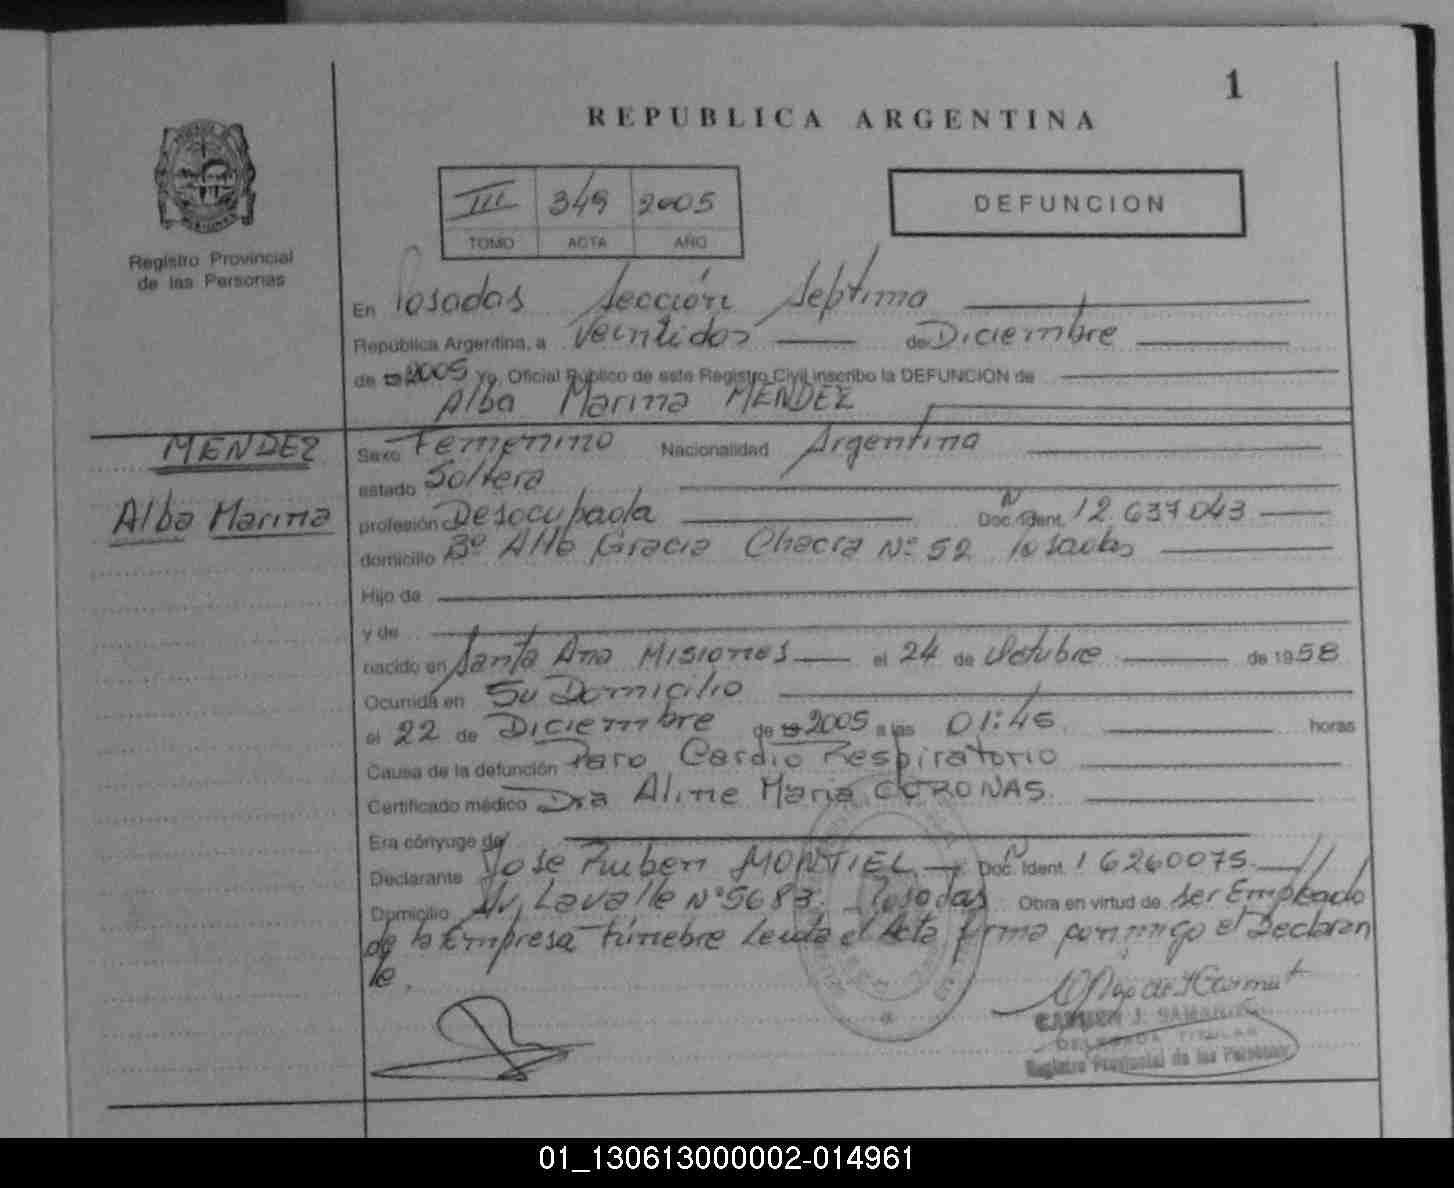 1
REPUBLICA ARGENTINA
III 349 2005
TOMO ACTA AÑO
DEFUNCION
Registro Provincial
de las Personas
En Posadas Sección Septima
República Argentina, a Veintidos de Diciembre
de 19 2005 Yo, Oficial Público de este Registro Civil inscribo la DEFUNCION de
Alba Marina MENDEZ
MENDEZ
Alba Marina
Sexo Femenino Nacionalidad Argentina
estado Soltera
profesión Desocupada Doc. Ident. 12.637043
domicilio Bº Alta Gracia Chacra Nº 52 Posadas
Hijo de
y de
nacido en Santa Ana Misiones el 24 de Octubre de 1958
Ocurrida en Su Domicilio
el 22 de Diciembre de 19 2005 a las 01:45 horas
Causa de la defunción Paro Cardio Respiratorio
Certificado médico Dra Aline Maria CORONAS.
Era cónyuge de
Declarante Jose Ruben MONTIEL Doc. Ident. 16260075
Domicilio Av. Lavalle Nº 5683 Posadas Obra en virtud de ser Empleado
de la Empresa Fúnebre Leida el Acta firma por migo el Declaran
te.
CARMEN J.
DELEGADA TITULAR
Registro Provincial de las Personas
01_130613000002-014961